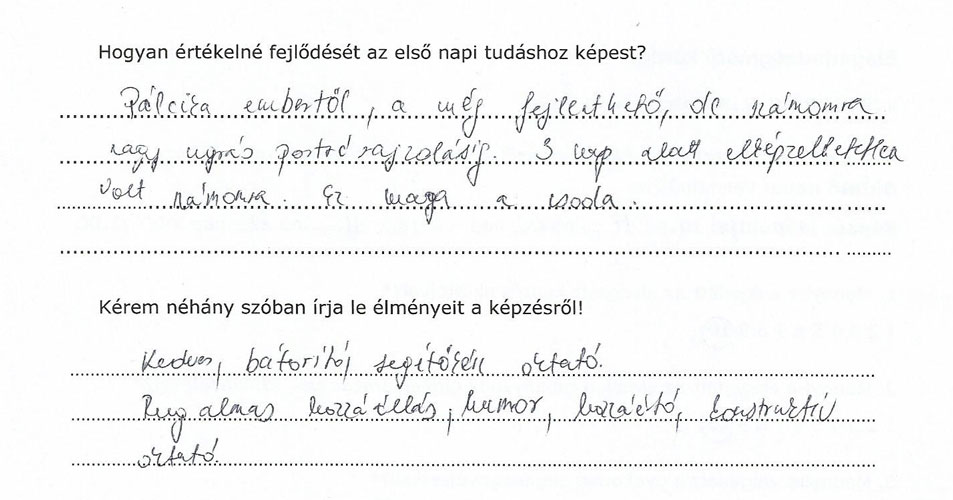 Hogyan értékelné fejlődését az első napi tudáshoz képest?
Pálcika embertől, a még fejleszthető, de számomra
nagy ugrás portré rajzolásig. 3 nap alatt elképzelhetetlen
volt számomra. Ez maga a csoda.
Kérem néhány szóban írja le élményeit a képzésről!
Kedves, bátorító, segítőkész oktató.
Rugalmas hozzáállás, humor, hozzáértő, konstruktív
oktató.